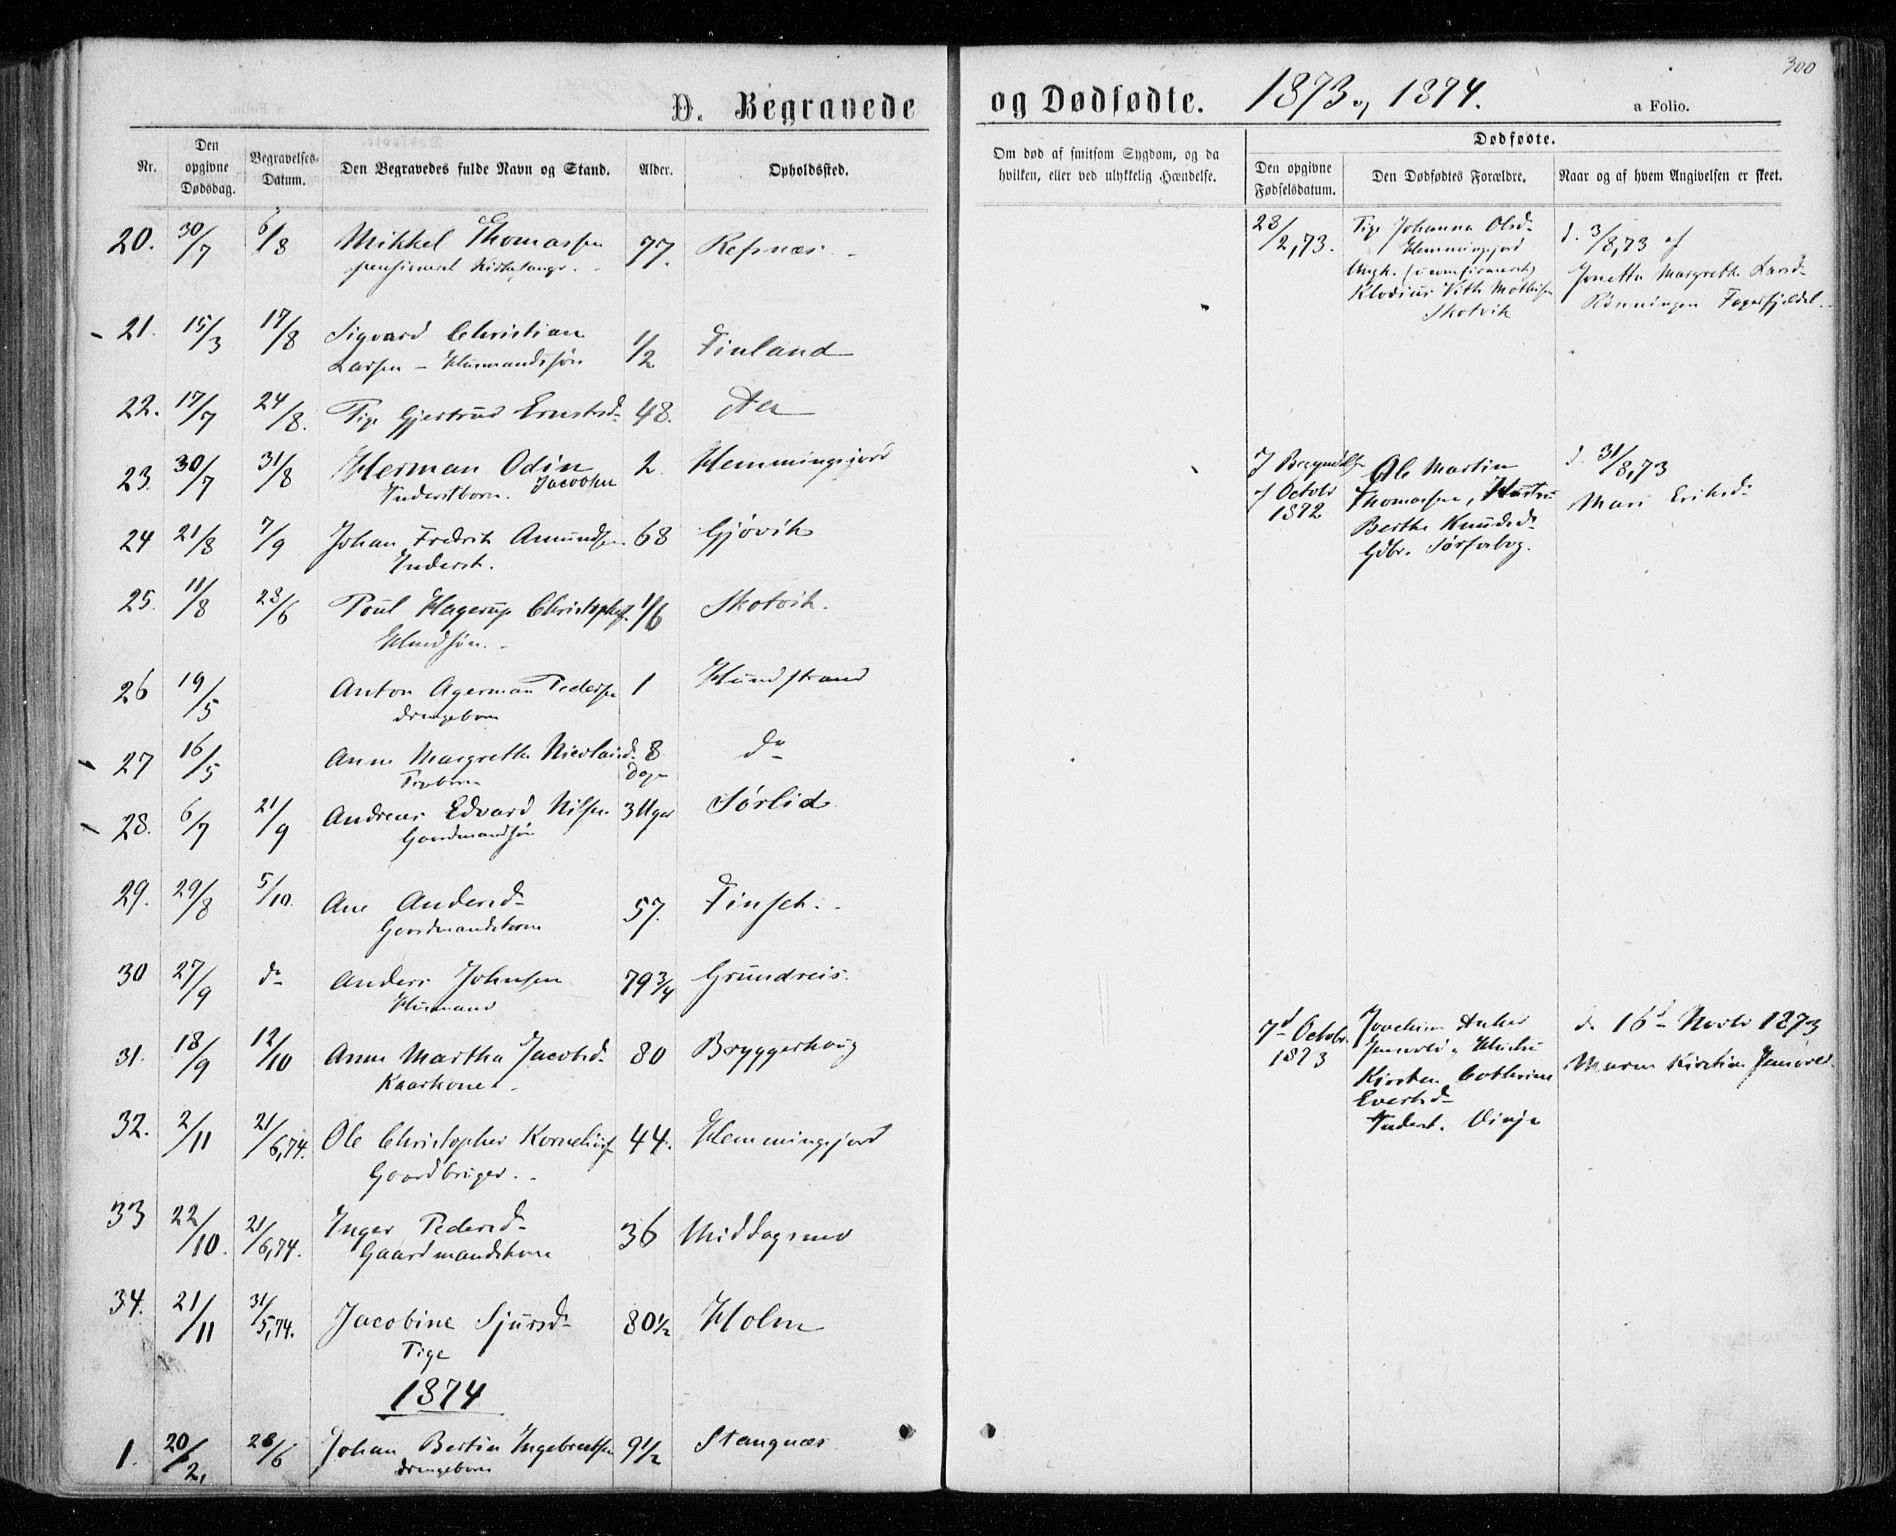 300
D. Begravede og Dødfødte. 1873 og 1874. a Folio.
Nr. Den opgivne Dødsdag. Begravelses-Datum. Den Begravedes fulde Navn og Stand. Alder. Opholdssted.
Om død af smitsom Sygdom, og da hvilken, eller ved ulykkelig Hændelse.
Dødfødte.
Den opgivne Fødselsdatum. Den Dødfødtes Forældre. Naar og af hvem Angivelsen er skeet.
20. 30/7 6/8 Mikkel Thomassen 77. Refsnæs
pensioneret Kirkesanger
21. 15/3 17/8 Sigvard Christian
Larsen - Husmandssøn 1/2 Finland
22. 17/7 24/8. Pige Gjertrud Ernstsd. 48. Aa
23. 30/7 31/8 Herman Odin Jacobsen 2. Hemmingsjord
Inderstbarn.
24 21/8 7/9 Johan Fredrik Amundsen 68 Gjøvik
Inderst.
25. 11/8 28/6 Poul Hagerup Christophers. 1/6 Skotvik.
Hmdsøn.
26 19/5 Anton Agerman Pedersen 1 Hundstrand
drengebarn
27 16/5 Anne Margrethe Nicolaisd. 8 Dage do
28. 6/7 21/9 Andreas Edvard Nilsen 3 Uger Sørlid
Gaardmandsøn
29. 29/8 5/10. Ane Andersd. 57. Finset.
Gaardmandskone
30 27/9 do Anders Johnsen 79 3/4 Grundreis.
Husmand
31. 18/9 12/10 Anne Martha Jacobsd. 80 Bryggerhoug
Kaarkone
32. 2/11 21/6,74. Ole Christopher Korneliusf 44. Hemmingsjord
Gaardbruger.
33 22/10. 21/6,74. Inger Pedersd. 36 Middagsnes
Gaardmandskone
34. 21/11 31/5,74. Jacobine Sjursd. 80 1/2 Holm
Pige
1874
1. 20/2, 28/6 Johan Bertin Ingebretsen 9 1/2 Stangnæs
drengebarn
28/2,73. Pige Johanna Olsd.
Hemmingsjord
Ungk. (uconfirmeret)
Klodius Vith Mathisen
Skotvik
d. 3/8,73 af
Jonetta Margrethe Larsd.
Rønningen Fagerfjeldet.
I Begyndelsen
af Octobr
1872
Ole Martin
Thomassen, Hustru
Berthe Knudsd.
Gdbr. Sørforbog.
d. 31/8,73
Mari Eriksd.
7d Octobr.
1873
Joachim Anker
Jensvold og Hustru
Kirsten Cathrine
Evertsd.
Inderst. Vinje
d. 16d Novbr 1873
Maren Kirstine Jensvold.